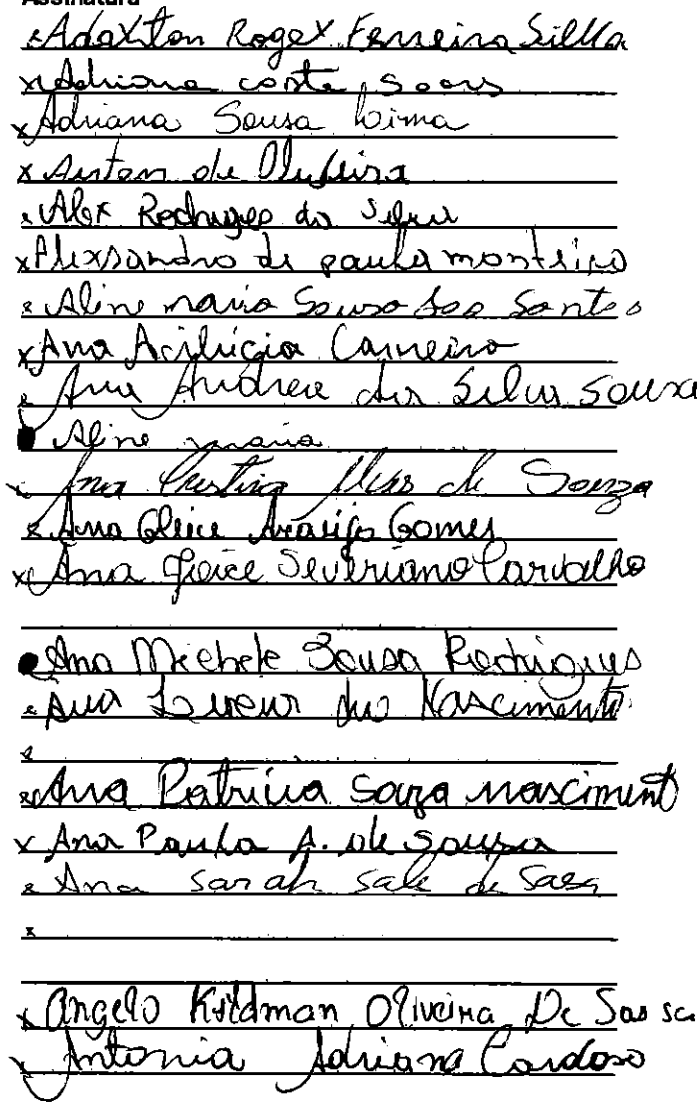 Assinatura
x Adaxlton Rogex Ferreira Sillva
x Adriana costa Soars
x Adriana Sousa Lima
x de Oliveira
x Alex Rodrigues da Silva
x Alexsandro de paula monteiro
x Aline maria Souso dos Santos
x Ana Acilúcia Carneiro
x Ana Andreia da Silva Sousa
Aline maria
x Ana Cristina Alves de Souza
x Ana Gleice Araújo Gomes
x Ana Gleice Severiano Carvalho
Ana Michele Sousa Rodrigues
x Ana do Nascimento
x
x Ana Patricia Souza nasciment
x Ana Paula A. de Sousa
x Ana Sarah Sale de
x
x Angelo Kildman Oliveira De
x Antonia Adriana Cardoso